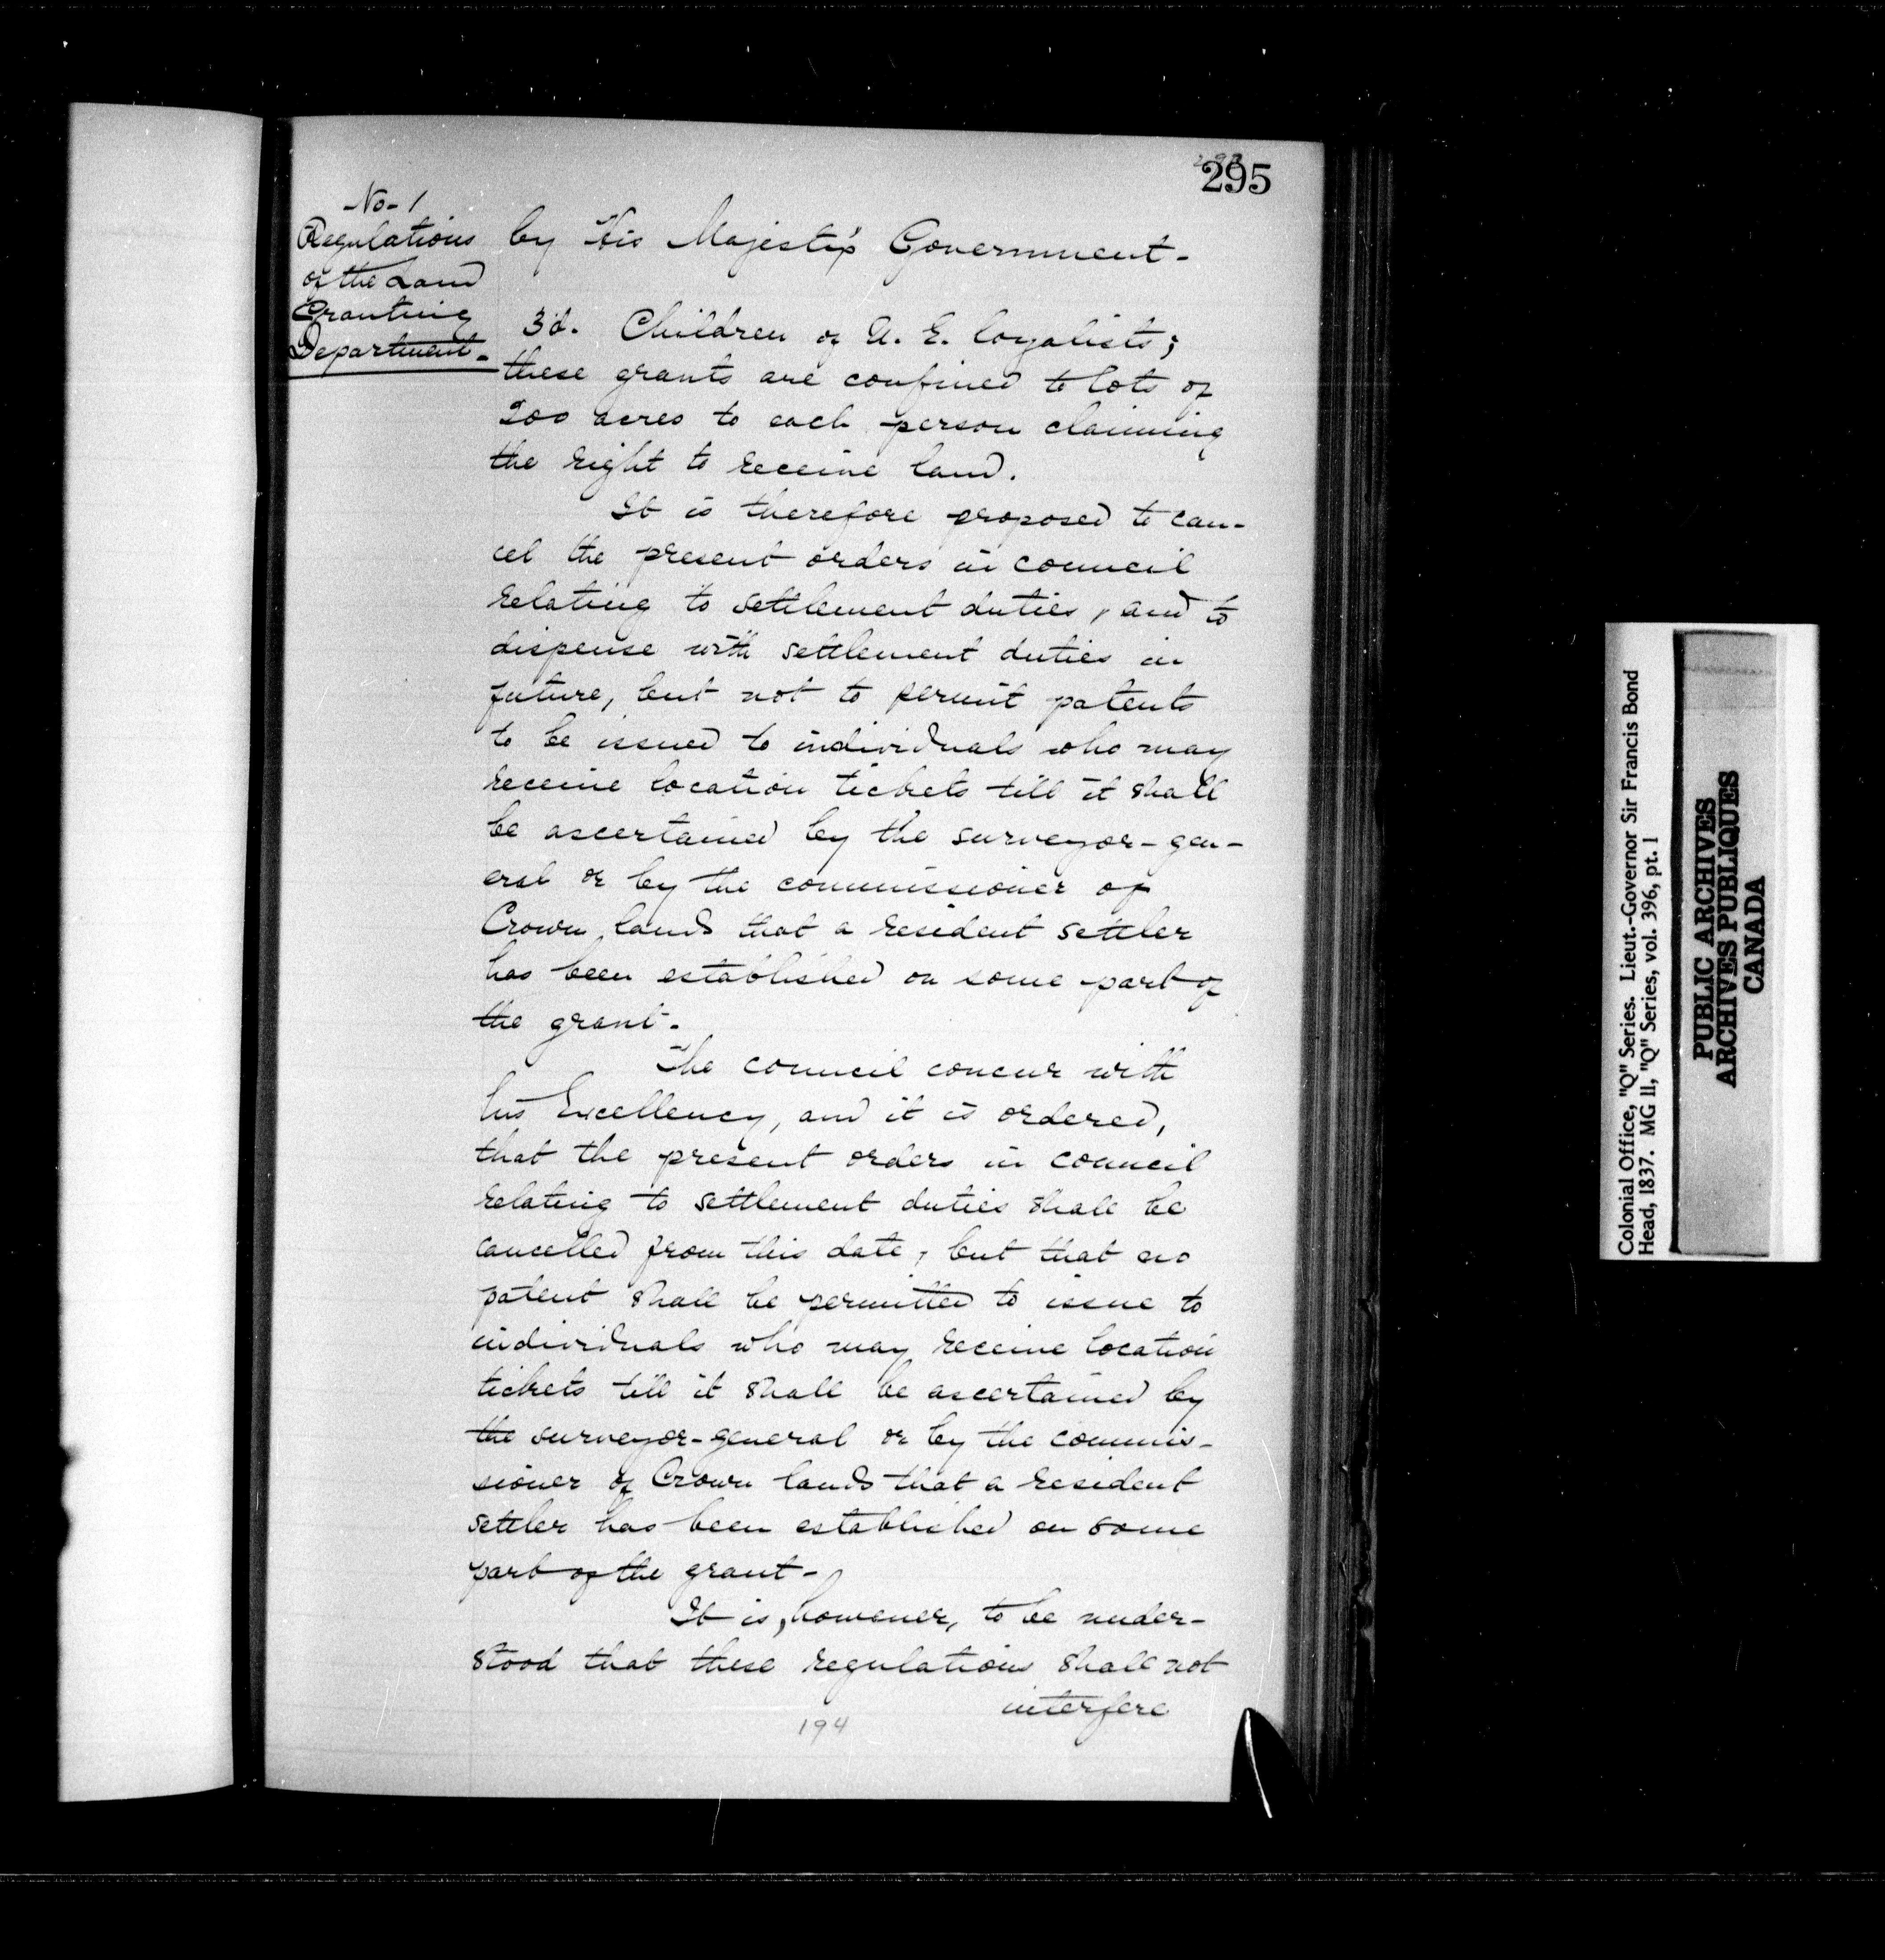 295
No. 1
Regulations
of the Land
Granting
Department.
by His Majesty's Government.
3d. Children of U. E. loyalists;
these grants are confined to lots of
200 acres to each person claiming
the right to receive land.
It is therefore proposed to can-
cel the present orders in council
relating to settlement duties, and to
dispense with settlement duties in
future, but not to permit patents
to be issued to individuals who may
receive location tickets till it shall
be ascertained by the surveyor-gen-
eral or by the commissioner of
Crown lands that a resident settler
has been established on some part of
the grant.
The council concur with
his Excellency, and it is ordered,
that the present orders in council
relating to settlement duties shall be
cancelled from this date, but that no
patent shall be permitted to issue to
individuals who may receive location
tickets till it shall be ascertained by
the surveyor-general or by the commis-
sioner of Crown lands that a resident
settler has been established on some
part of the grant.
It is, however, to be under-
stood that these regulations shall not
interfere
194
Colonial Office, "Q" Series. Lieut.-Governor Sir Francis Bond
Head, 1837. MG 11, "Q" Series, vol. 396, pt. 1
PUBLIC ARCHIVES
ARCHIVES PUBLIQUES
CANADA